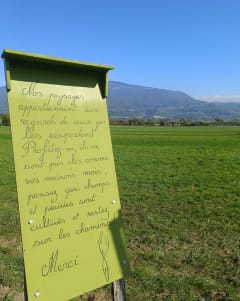 Nos paysages
appartiennent aux
regards de ceux qui
les respectent
Profitez-en, ils ne
sont pas clos comme
vos maisons mais
pensez que champs
et prairies sont
cultivés et restez
sur les chemins
Merci